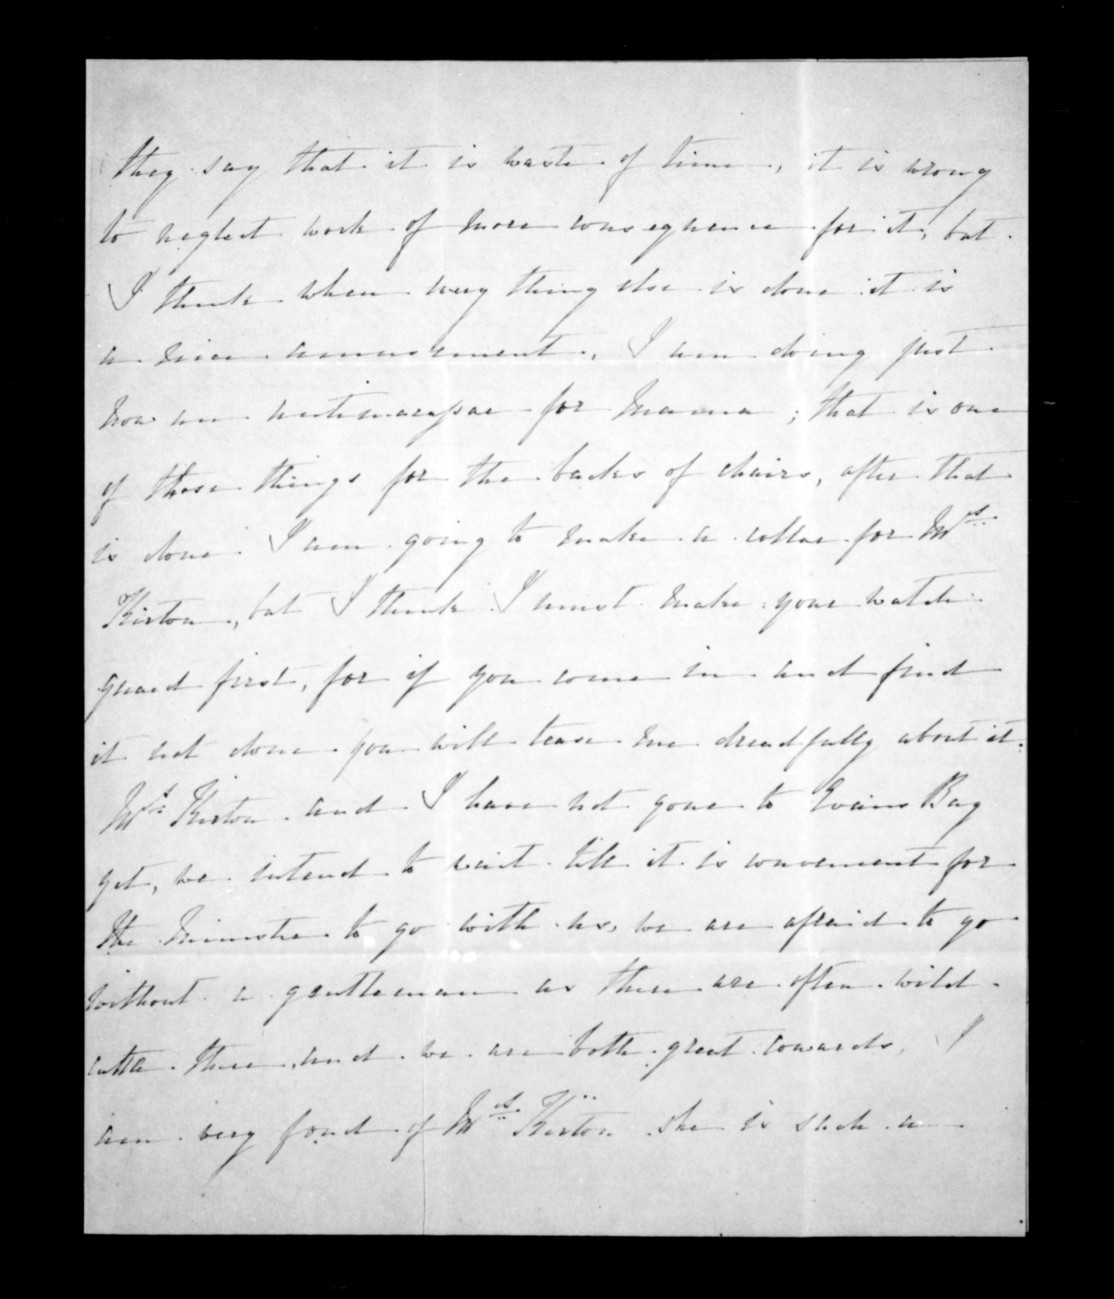 they say that it is waste of time, it is wrong
to neglect work of more consequence for it, but
I think when every thing else is done it is
a nice amusement, I am doing just
now an antimacassar for Mama; that is one
of those things for the backs of chairs, after that
is done I am going to make a collar for Mrs
Kirton, but I think I must make your watch
guard first, for if you come in and find
it not done you will tease me dreadfully about it.
Mrs Kirton and I have not gone to Evans Bay
yet, we intend to wait till it is convenient for
the Minister to go with us, we are afraid to go
without a gentleman as there are often wild
cattle there, and we are both great cowards, I
am very fond of Mrs Kirton she is such a